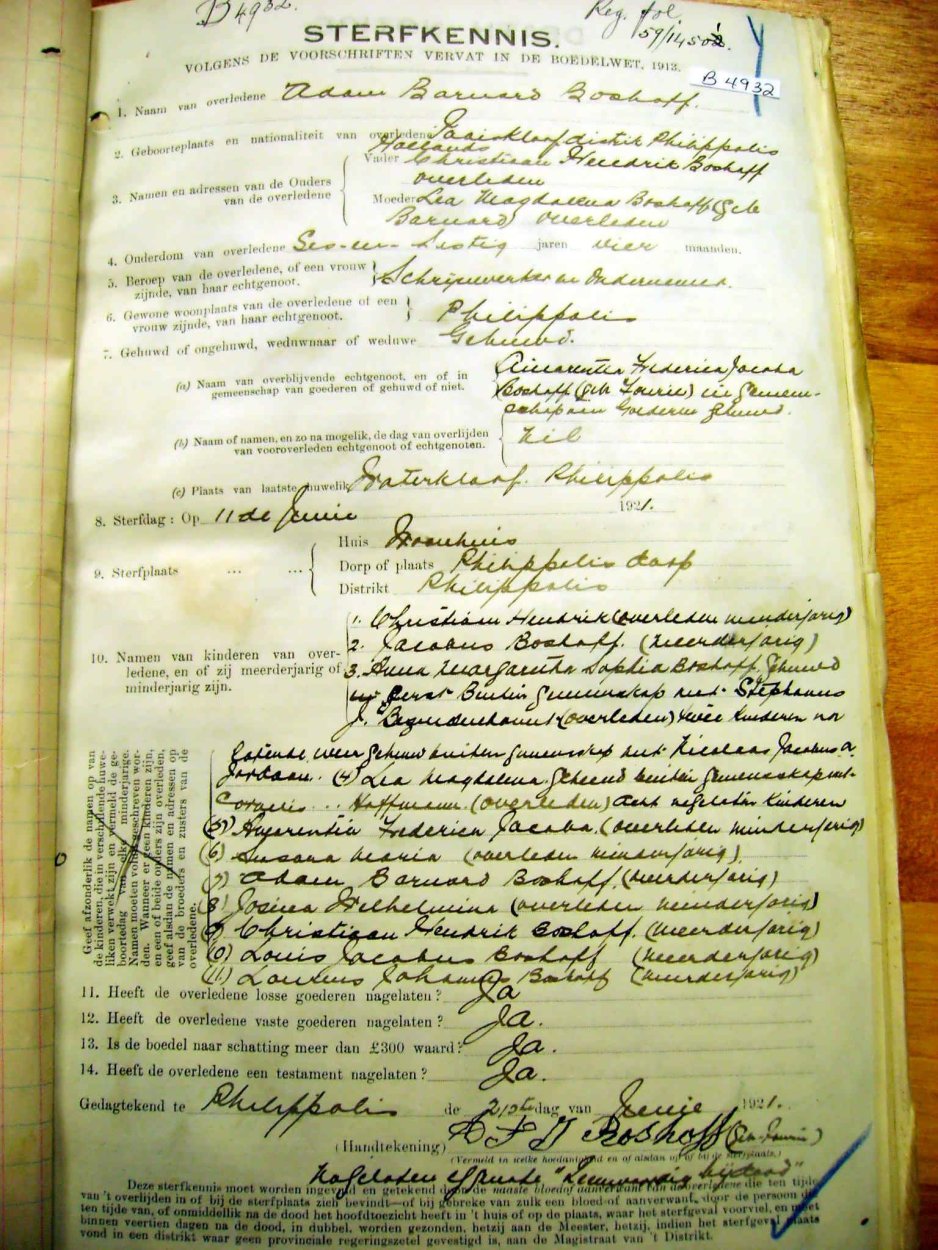 B 4932.
Reg. fol.
59/14502.
STERFKENNIS.
VOLGENS DE VOORSCHRIFTEN VERVAT IN DE BOEDELWET, 1913.
B 4932
1. Naam van overledene Adam Barnard Boshoff.
2. Geboorteplaats en nationaliteit van overledene distrik Philippolis
Hollands
3. Namen en adressen van de Ouders van de overledene
Vader Christiaan Hendrik Boshoff
overleden
Moeder Lea Magdalena Boshoff (geb
Barnard) overleden
4. Onderdom van overledene Ses-en-Sestig jaren vier maanden.
5. Beroep van de overledene, of een vrouw zijnde, van haar echtgenoot.
Schrijnwerker en Ondernemer.
6. Gewone woonplaats van de overledene of een vrouw zijnde, van haar echtgenoot.
Philippolis
7. Gehuwd of ongehuwd, weduwnaar of weduwe Gehuwd.
(a) Naam van overblijvende echtgenoot, en of in gemeenschap van goederen of gehuwd of niet.
Frederica Jacoba
Boshoff (geb Fourie) in gemeen-
schap van Goederen gehuwd.
(b) Naam of namen, en zo na mogelik, de dag van overlijden van vooroverleden echtgenoot of echtgenoten.
Nil
(c) Plaats van laatste huwelik Waterkloof. Philippolis
8. Sterfdag: Op 11de Junie 1921.
9. Sterfplaats ... ...
Huis Woonhuis
Dorp of plaats Philippolis dorp
Distrikt Philippolis
10. Namen van kinderen van overledene, en of zij meerderjarig of minderjarig zijn.
1. Christiaan Hendrik (overleden minderjarig)
2. Jacobus Boshoff. (meerderjarig)
3. Anna Margaretha Sophia Boshoff. Gehuwd
eerst Buiten gemeenskap met Stephanus
J. Bezuidenhout (overleden) twee kinderen
weer gehuwd buiten gemeenskap met Nicolaas Jacobus
Jordaan. (4) Lea Magdalena gehuwd buiten gemeenskap met
Hoffmann. (overleden) acht kinderen
(5) Frederica Jacoba. (overleden minderjarig)
(6) Susara Maria (overleden minderjarig)
(7) Adam Barnard Boshoff. (meerderjarig)
(8) Wilhelmina (overleden minderjarig)
(9) Christiaan Hendrik Boshoff. (meerderjarig)
(10) Louis Jacobus Boshoff (meerderjarig)
(11) Lourens Johannes Boshoff (meerderjarig)
Geef afzonderlik de namen op van
de kinderen, die in verschillende huwe-
liken verwekt zijn en vermeld de ge-
boortedag van elke minderjarige.
Namen moeten voluit geschreven wor-
den. Wanneer er geen kinderen zijn,
en een of beide ouders zijn overleden,
geef alsdan de namen en adressen op
van de broeders en zusters van de
overledene.
11. Heeft de overledene losse goederen nagelaten? Ja
12. Heeft de overledene vaste goederen nagelaten? Ja.
13. Is de boedel naar schatting meer dan £300 waard? Ja.
14. Heeft de overledene een testament nagelaten? Ja.
Gedagtekend te Philippolis de 21ste dag van Junie 1921.
(Handtekening) A F J Boshoff (geb. Fourie)
(Vermeld in welke hoedanigheid en of alsdan op of bij de sterfplaats.)
Nagelaten
Deze sterfkennis moet worden ingevuld en getekend door de naaste bloed of aanverwant van de overledene die ten tijde
van 't overlijden in of bij de sterfplaats zich bevindt—of bij gebreke van zulk een bloed of aanverwant, door de persoon die
ten tijde van, of onmiddellik na de dood het hoofdtoezicht heeft in 't huis of op de plaats, waar het sterfgeval voorviel, en moet
binnen veertien dagen na de dood, in dubbel, worden gezonden, hetzij aan de Meester, hetzij, indien het sterfgeval plaats
vond in een distrikt waar geen provinciale regeringszetel gevestigd is, aan de Magistraat van 't Distrikt.